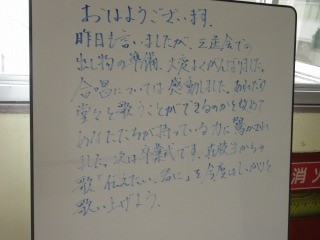 おはようございます。
昨日も言いましたが、三送会での
出し物の準備、大変よくがんばりました。
合唱については感動しました。あれだけ
堂々と歌うことができるのかと改めて
あなたたちが持っている力に驚かされ
ました。次は卒業式です。在校生からの
歌「伝えたい。君に」を今度はしっかりと
歌い上げよう。
消火